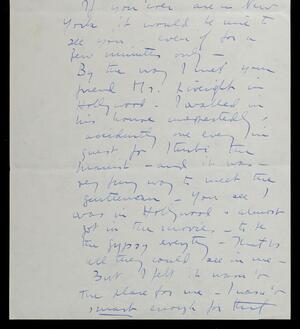 If you ever are in New
York it would be nice to
see you - even if for a
few minutes only -
By the way I met your
friend Mr. Liveright in
Hollywood - I walked in
his house unexpectedly,
accidently one evening in
quest for Iturbi the
pianist - and it was a
very funny way to meet the
gentleman - You see I
was in Hollywood & almost
got in the movies - to be
the gypsy everyting - That is
all they could see in me -
But I felt it wasn't
the place for me - I wasn't
smart enough for that